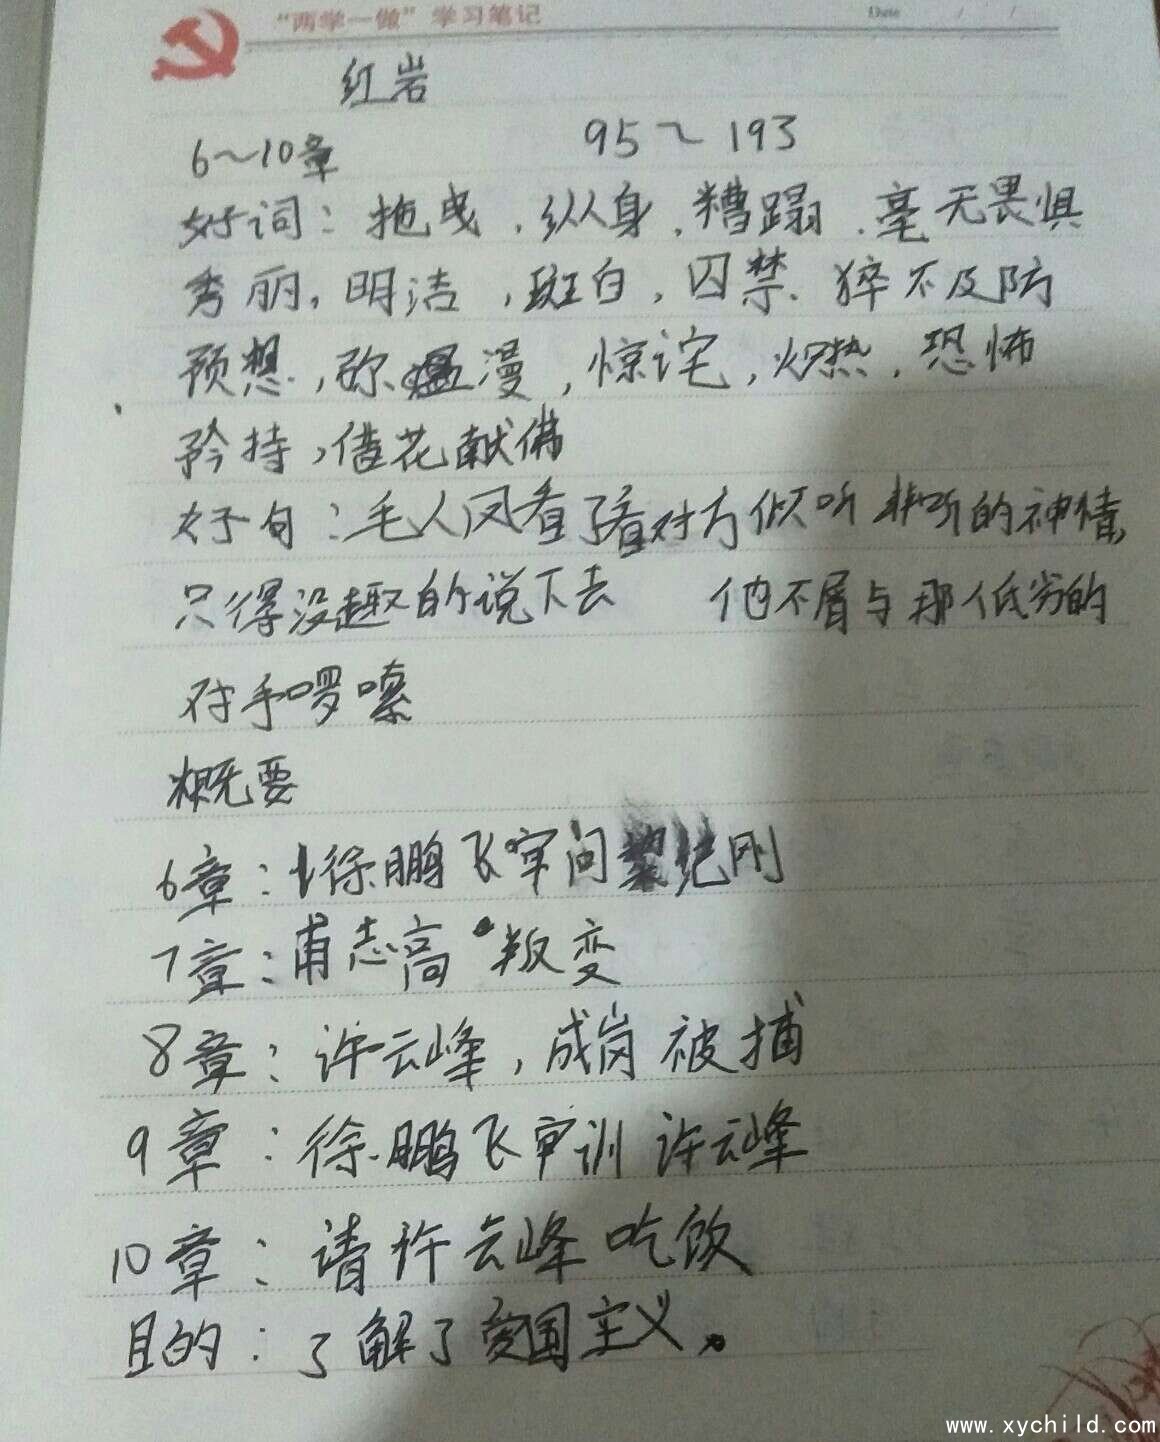 “两学一做”学习笔记 Date / /
红岩
6～10章 95～193
好词：拖曳，纵身，糟蹋，毫无畏惧
秀丽，明洁，斑白，囚禁、猝不及防
预想，弥漫，惊诧，灼热，恐怖
矜持，借花献佛
好句：毛人凤看了看对方倾听非听的神情，
只得没趣的说下去 他不屑与那低劣的
对手啰嗦
概要
6章：徐鹏飞审问黎纪刚
7章：甫志高叛变
8章：许云峰，成岗被捕
9章：徐鹏飞审训许云峰
10章：请许云峰吃饭
目的：了解了爱国主义。
www.xychild.com